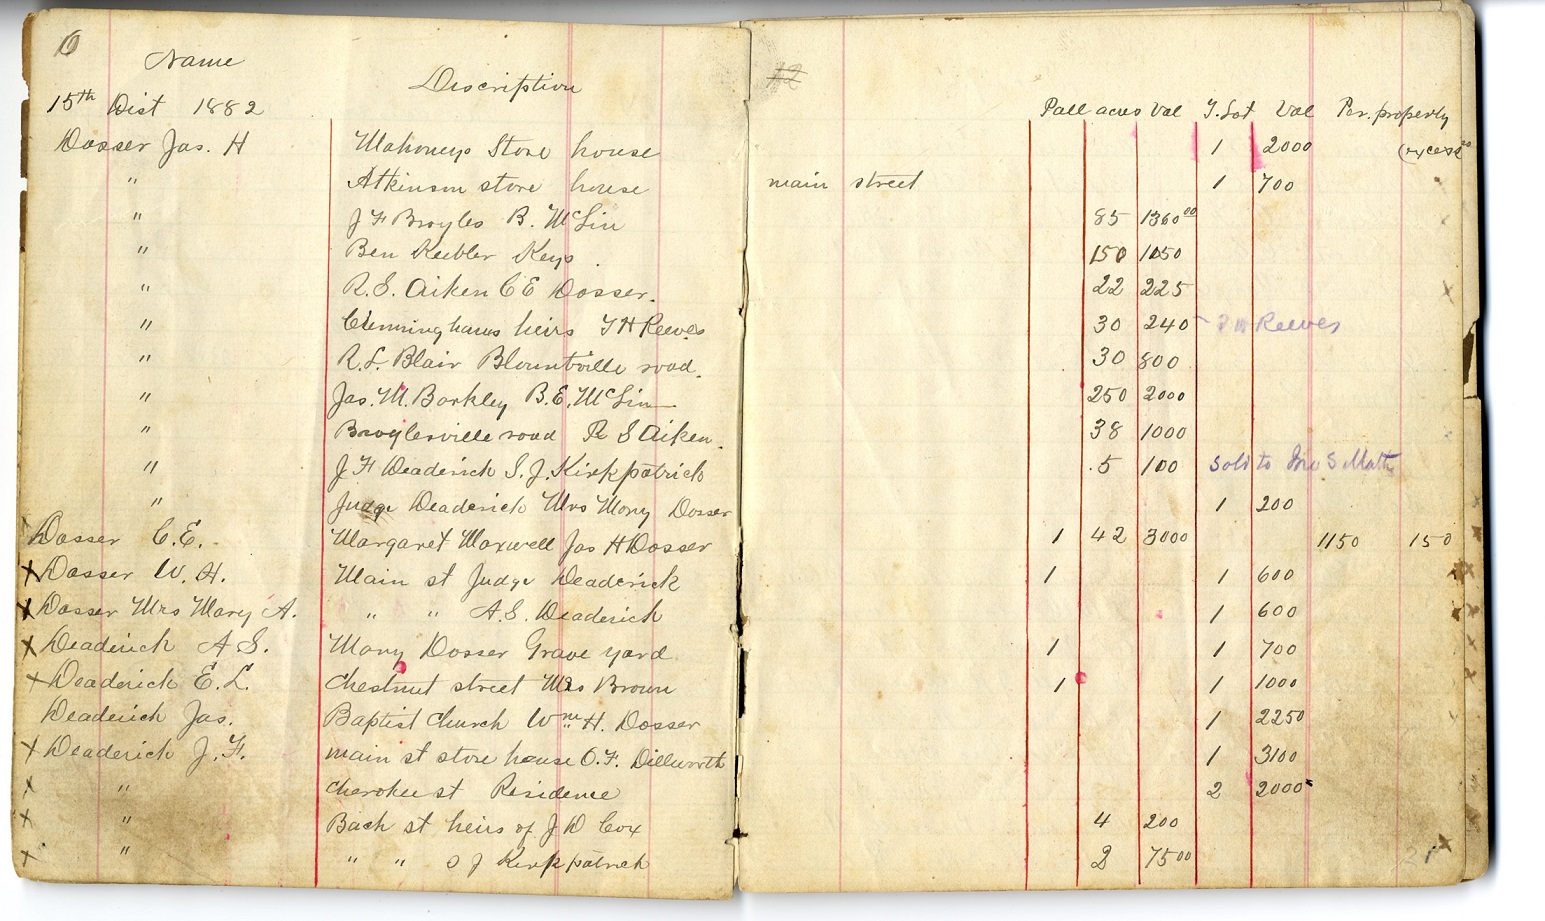 6
Name Description 12
15th Dist 1882 Poll acres Val T. Lot Val Per. property
Dosser Jas. H Mahoneys Store house 1 2000 (excess
" Atkinson store house main street 1 700
" J F Broyles B. McLin 85 1360 00
" Ben Keebler Keys. 150 1050
" R. S. Aiken C E Dosser. 22 225
" Cunninghams heirs T H Reeves 30 240 - T H Reeves
" R. L. Blair Blountville road. 30 800
" Jas. M. Barkley B. E. McLin 250 2000
" Broylesville road R S Aiken. 38 1000
" J F Deaderick S. J. Kirkpatrick .5 100 Sold to Jno S
" Judge Deaderick Mrs Mary Dosser 1 200
Dosser C. E. Margaret Maxwell Jas H Dosser 1 42 3000 1150 150
x Dosser W. H. Main st Judge Deaderick 1 1 600
x Dosser Mrs Mary A. " " A. S. Deaderick 1 600
x Deaderick A S. Mary Dosser Grave yard 1 1 700
x Deaderick E. L. Chestnut street Mrs Brown 1 1 1000
Deaderick Jas. Baptist Church Wm H. Dosser 1 2250
x Deaderick J. F. main st store house O. F. Dillworth 1 3100
x " Cherokee st Residence 2 2000
x " Back st heirs of J D Cox 4 200
x " " " S J Kirkpatrick 2 75 00